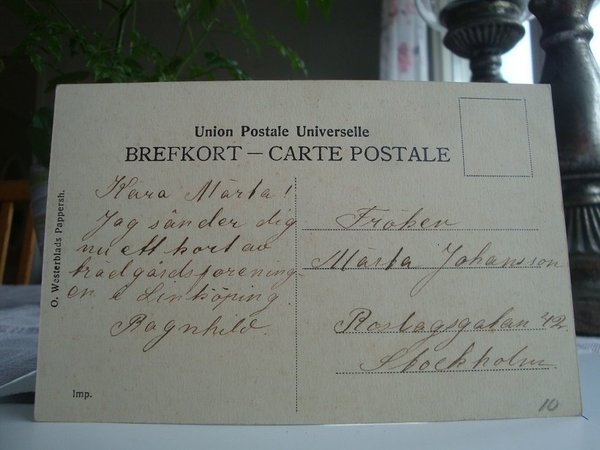 Union Postale Universelle
BREFKORT — CARTE POSTALE
O. Westerblads Pappersh.
Kära Märta!
Jag sänder dig
nu ett kort av
trädgårdsförening-
en i Linköping.
Ragnhild.
Fröken
Märta Johansson
Roslagsgatan 42
Stockholm.
Imp.
10